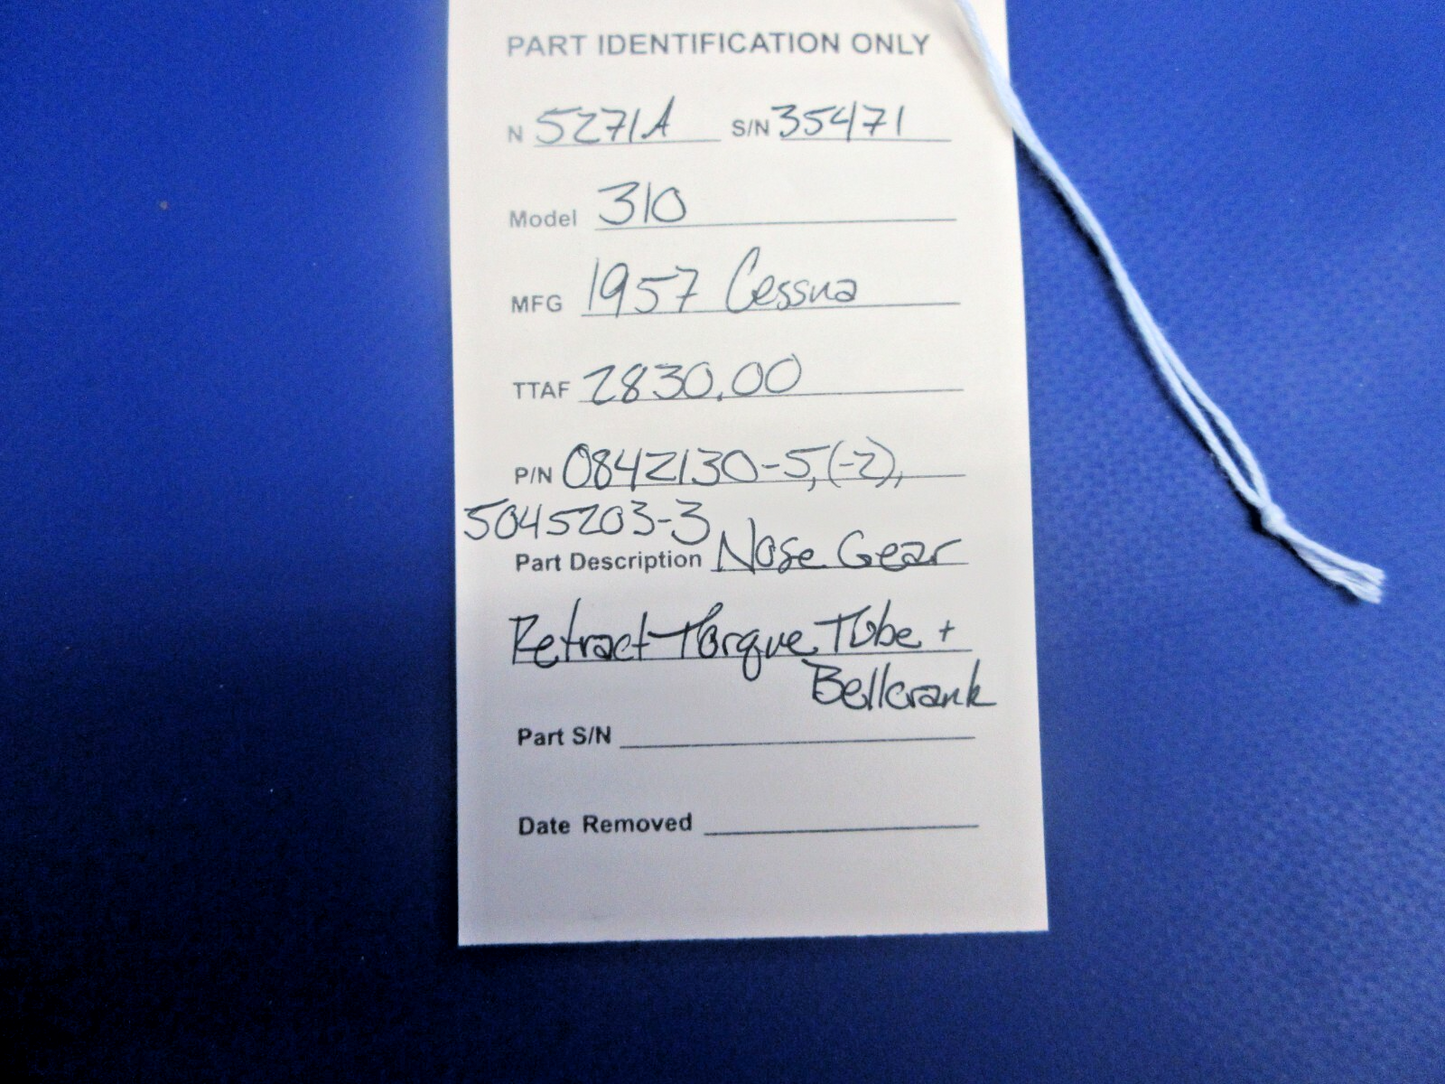 PART IDENTIFICATION ONLY
N 5271A S/N 35471
Model 310
MFG 1957 Cessna
TTAF 2830.00
P/N 0842130-5,(-2),
5045203-3
Part Description Nose Gear
Retract Torque Tube +
Bellcrank
Part S/N
Date Removed